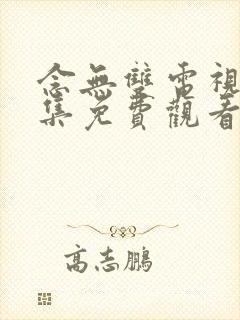 念無雙電視
集免費觀看
高志鵬